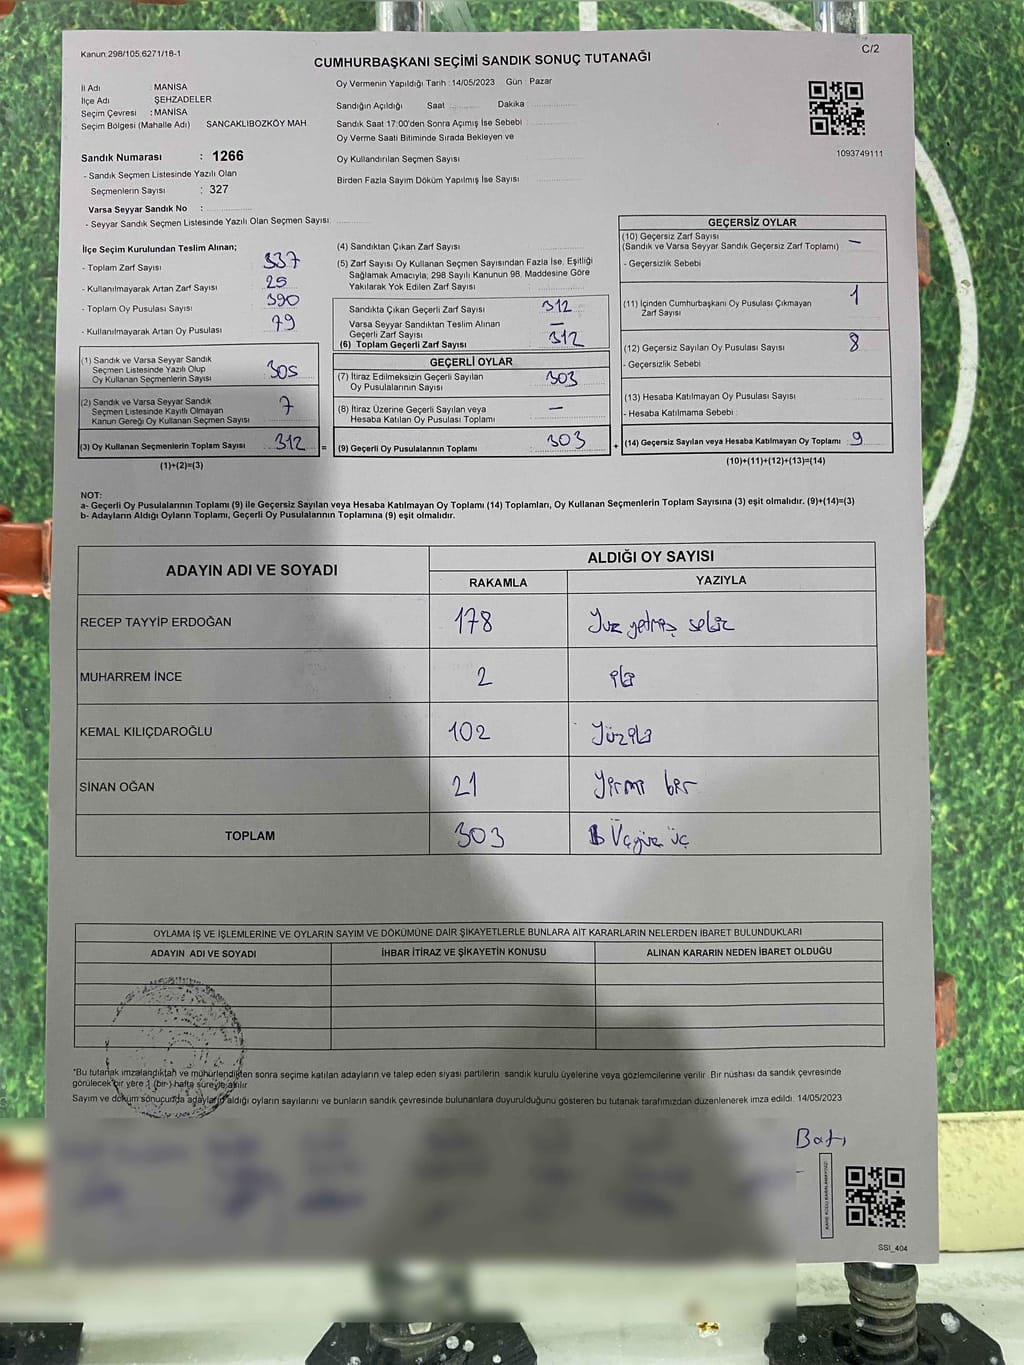 Kanun:298/105,6271/18-1
C/2
CUMHURBAŞKANI SEÇİMİ SANDIK SONUÇ TUTANAĞI
İl Adı : MANİSA
İlçe Adı ŞEHZADELER
Seçim Çevresi : MANİSA
Seçim Bölgesi (Mahalle Adı) SANCAKLIBOZKÖY MAH.
Oy Vermenin Yapıldığı Tarih : 14/05/2023 Gün : Pazar
Sandığın Açıldığı Saat Dakika
Sandık Saat 17:00'den Sonra Açımış İse Sebebi
Oy Verme Saati Bitiminde Sırada Bekleyen ve
Oy Kullandırılan Seçmen Sayısı
Birden Fazla Sayım Döküm Yapılmış İse Sayısı
1093749111
Sandık Numarası : 1266
- Sandık Seçmen Listesinde Yazılı Olan
Seçmenlerin Sayısı : 327
Varsa Seyyar Sandık No :
- Seyyar Sandık Seçmen Listesinde Yazılı Olan Seçmen Sayısı:
İlçe Seçim Kurulundan Teslim Alınan;
- Toplam Zarf Sayısı 337
- Kullanılmayarak Artan Zarf Sayısı 25
- Toplam Oy Pusulası Sayısı 390
- Kullanılmayarak Artan Oy Pusulası 79
(1) Sandık ve Varsa Seyyar Sandık
Seçmen Listesinde Yazılı Olup
Oy Kullanan Seçmenlerin Sayısı 305
(2) Sandık ve Varsa Seyyar Sandık
Seçmen Listesinde Kayıtlı Olmayan
Kanun Gereği Oy Kullanan Seçmen Sayısı 7
(3) Oy Kullanan Seçmenlerin Toplam Sayısı 312 =
(1)+(2)=(3)
(4) Sandıktan Çıkan Zarf Sayısı
(5) Zarf Sayısı Oy Kullanan Seçmen Sayısından Fazla İse, Eşitliği
Sağlamak Amacıyla; 298 Sayılı Kanunun 98. Maddesine Göre
Yakılarak Yok Edilen Zarf Sayısı
Sandıkta Çıkan Geçerli Zarf Sayısı 312
Varsa Seyyar Sandıktan Teslim Alınan
Geçerli Zarf Sayısı —
(6) Toplam Geçerli Zarf Sayısı 312
GEÇERLİ OYLAR
(7) İtiraz Edilmeksizin Geçerli Sayılan
Oy Pusulalarının Sayısı 303
(8) İtiraz Üzerine Geçerli Sayılan veya
Hesaba Katılan Oy Pusulası Toplamı —
(9) Geçerli Oy Pusulalarının Toplamı 303 +
GEÇERSİZ OYLAR
(10) Geçersiz Zarf Sayısı
(Sandık ve Varsa Seyyar Sandık Geçersiz Zarf Toplamı) —
- Geçersizlik Sebebi
(11) İçinden Cumhurbaşkanı Oy Pusulası Çıkmayan
Zarf Sayısı 1
(12) Geçersiz Sayılan Oy Pusulası Sayısı 8
- Geçersizlik Sebebi
(13) Hesaba Katılmayan Oy Pusulası Sayısı
- Hesaba Katılmama Sebebi
(14) Geçersiz Sayılan veya Hesaba Katılmayan Oy Toplamı 9
(10)+(11)+(12)+(13)=(14)
NOT:
a- Geçerli Oy Pusulalarının Toplamı (9) ile Geçersiz Sayılan veya Hesaba Katılmayan Oy Toplamı (14) Toplamları, Oy Kullanan Seçmenlerin Toplam Sayısına (3) eşit olmalıdır. (9)+(14)=(3)
b- Adayların Aldığı Oyların Toplamı, Geçerli Oy Pusulalarının Toplamına (9) eşit olmalıdır.
ADAYIN ADI VE SOYADI
ALDIĞI OY SAYISI
RAKAMLA YAZIYLA
RECEP TAYYİP ERDOĞAN 178 Yüz yetmiş sekiz
MUHARREM İNCE 2 iki
KEMAL KILIÇDAROĞLU 102 Yüziki
SİNAN OĞAN 21 Yirmi bir
TOPLAM 303 Üçyüz üç
OYLAMA İŞ VE İŞLEMLERİNE VE OYLARIN SAYIM VE DÖKÜMÜNE DAİR ŞİKAYETLERLE BUNLARA AİT KARARLARIN NELERDEN İBARET BULUNDUKLARI
ADAYIN ADI VE SOYADI İHBAR İTİRAZ VE ŞİKAYETİN KONUSU ALINAN KARARIN NEDEN İBARET OLDUĞU
*Bu tutanak imzalandıktan ve mühürlendikten sonra seçime katılan adayların ve talep eden siyasi partilerin sandık kurulu üyelerine veya gözlemcilerine verilir. Bir nüshası da sandık çevresinde
görülecek bir yere 1 (bir-) hafta süreyle asılır.
Sayım ve döküm sonucunda adayların aldığı oyların sayılarını ve bunların sandık çevresinde bulunanlara duyurulduğunu gösteren bu tutanak tarafımızdan düzenlenerek imza edildi. 14/05/2023
Batı
SSI_404